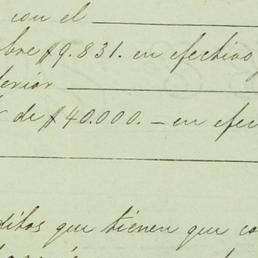 con el
bre $9.831. en efectivo
terior
de $40.000.— en efec
ditos que tienen que co